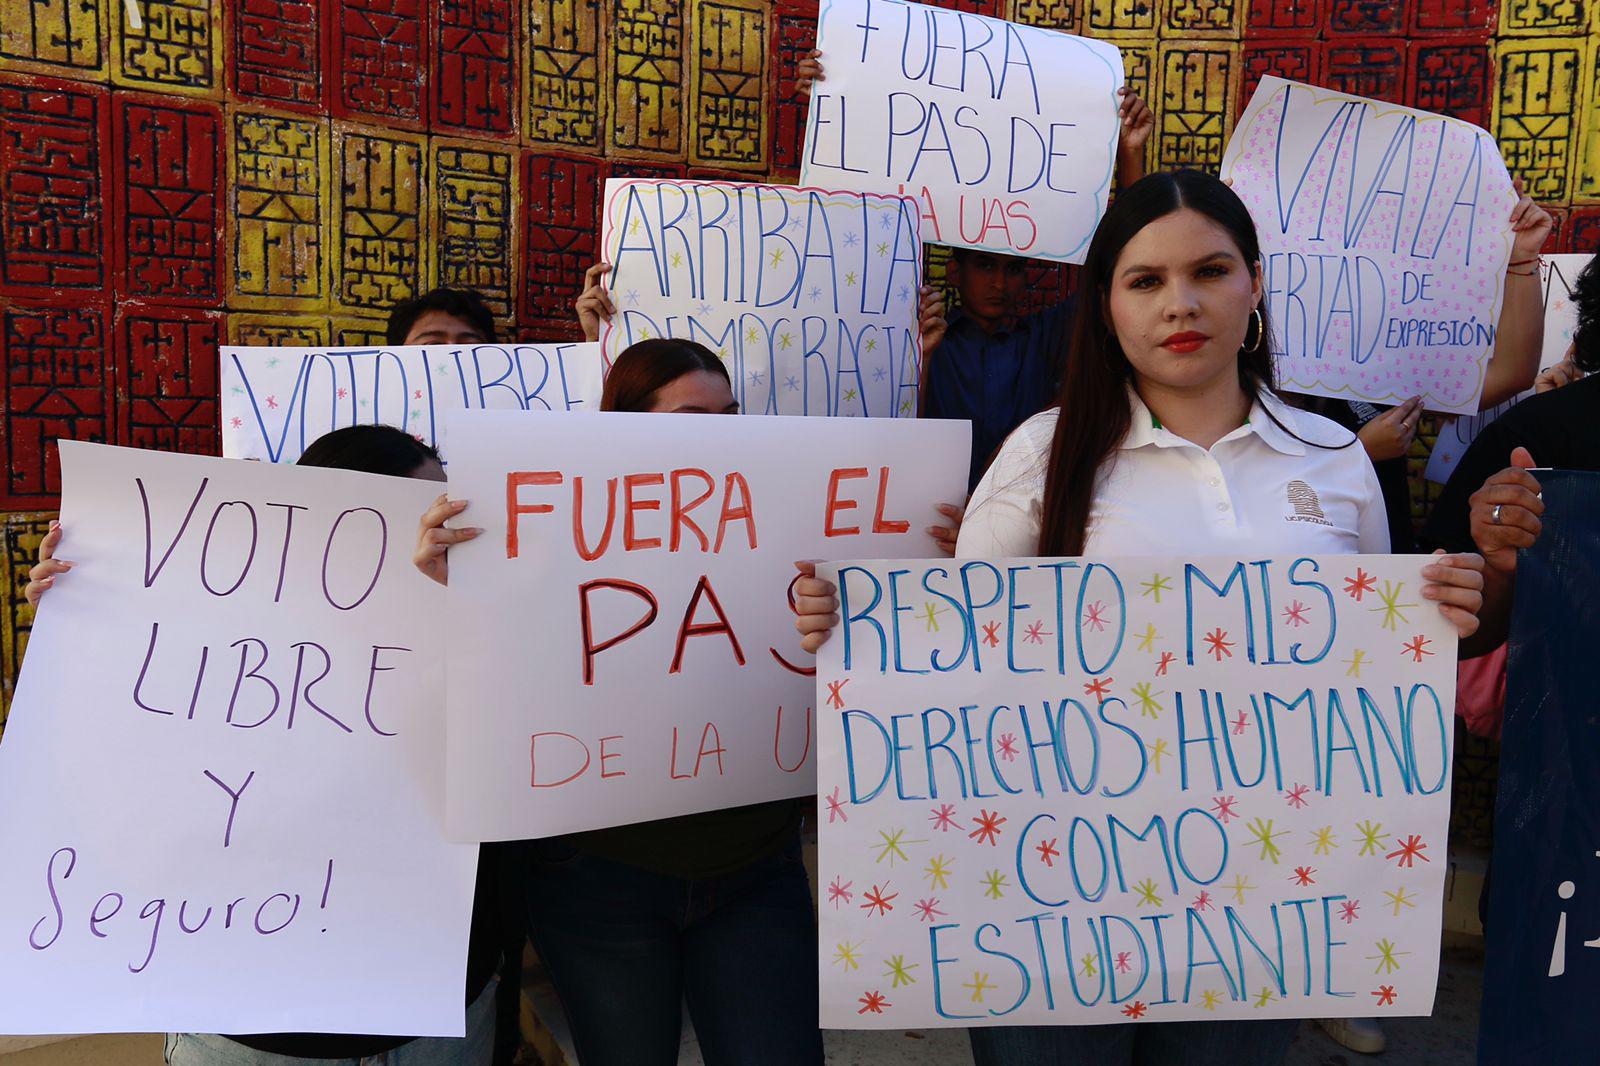 FUERA
EL PAS DE
LA UAS
ARRIBA LA
DEMOCRACIA
VIVA LA
ERTAD DE
EXPRESIÓN
VOTO LIBRE
VOTO
LIBRE
Y
Seguro!
FUERA EL
PAS
DE LA U
LIC. PSICOLOGÍA
RESPETO MIS
DERECHOS HUMANO
COMO
ESTUDIANTE
¡